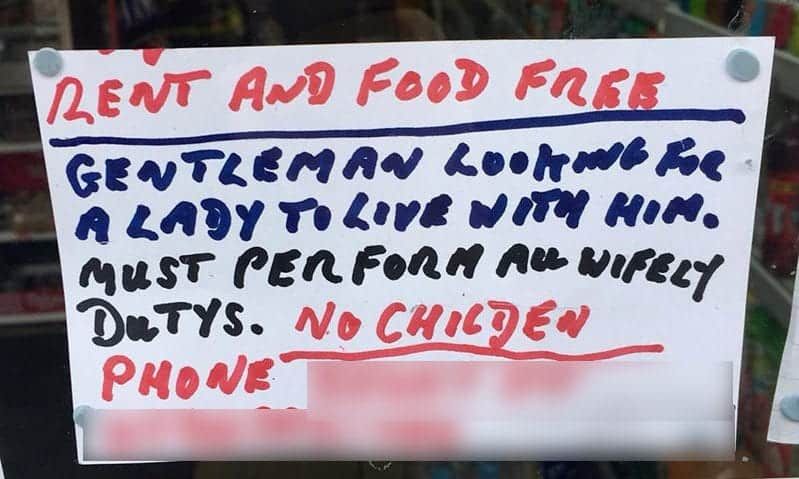 RENT AND FOOD FREE
GENTLEMAN LOOKING FOR
A LADY TO LIVE WITH HIM.
MUST PERFORM ALL WIFELY
DUTYS. NO CHILDEN
PHONE